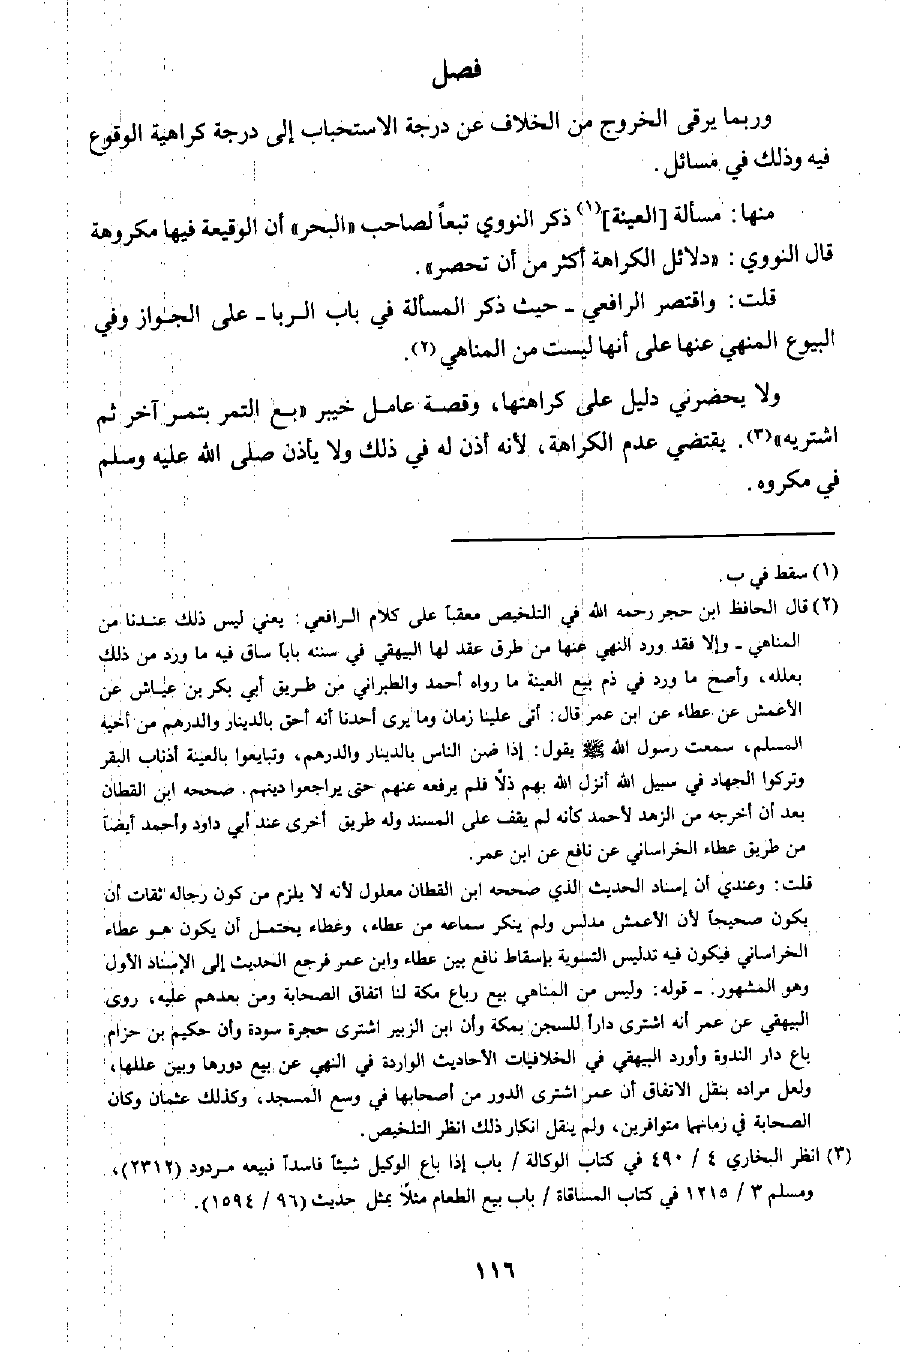 فصل
وربما يرقى الخروج من الخلاف عن درجة الاستحباب إلى درجة كراهية الوقوع
فيه وذلك في مسائل.
منها: مسألة [العينة](١) ذكر النووي تبعاً لصاحب «البحر» أن الوقيعة فيها مكروهة
قال النووي: «دلائل الكراهة أكثر من أن تحصر».
قلت: واقتصر الرافعي ـ حيث ذكر المسألة في باب الربا ـ على الجواز وفي
البيوع المنهي عنها على أنها ليست من المناهي (٢).
ولا يحضرني دليل على كراهتها، وقصة عامل خيبر «بع التمر بتمر آخر ثم
اشتريه»(٣). يقتضي عدم الكراهة، لأنه أذن له في ذلك ولا يأذن صلى الله عليه وسلم
في مكروه.
(١) سقط في ب.
(٢) قال الحافظ ابن حجر رحمه الله في التلخيص معقباً على كلام الرافعي: يعني ليس ذلك عندنا من
المناهي ـ وإلا فقد ورد النهي عنها من طرق عقد لها البيهقي في سننه باباً ساق فيه ما ورد من ذلك
بعلله، وأصح ما ورد في ذم بيع العينة ما رواه أحمد والطبراني من طريق أبي بكر بن عياش عن
الأعمش عن عطاء عن ابن عمر قال: أتى علينا زمان وما يرى أحدنا أنه أحق بالدينار والدرهم من أخيه
المسلم، سمعت رسول الله ﷺ يقول: إذا ضن الناس بالدينار والدرهم، وتبايعوا بالعينة أذناب البقر
وتركوا الجهاد في سبيل الله أنزل الله بهم ذلاً فلم يرفعه عنهم حتى يراجعوا دينهم. صححه ابن القطان
بعد أن أخرجه من الزهد لأحمد كأنه لم يقف على المسند وله طريق أخرى عند أبي داود وأحمد أيضاً
من طريق عطاء الخراساني عن نافع عن ابن عمر.
قلت: وعندي أن إسناد الحديث الذي صححه ابن القطان معلول لأنه لا يلزم من كون رجاله ثقات أن
يكون صحيحاً لأن الأعمش مدلس ولم ينكر سماعه من عطاء، وعطاء يحتمل أن يكون هو عطاء
الخراساني فيكون فيه تدليس التسوية بإسقاط نافع بين عطاء وابن عمر فرجع الحديث إلى الإسناد الأول
وهو المشهور. ـ قوله: وليس من المناهي بيع رباع مكة لنا اتفاق الصحابة ومن بعدهم عليه، روى
البيهقي عن عمر أنه اشترى داراً للسجن بمكة وأن ابن الزبير اشترى حجرة سودة وأن حكيم بن حزام
باع دار الندوة وأورد البيهقي في الخلافيات الأحاديث الواردة في النهي عن بيع دورها وبين عللها،
ولعل مراده بنقل الاتفاق أن عمر اشترى الدور من أصحابها في وسع المسجد، وكذلك عثمان وكان
الصحابة في زمانهما متوافرين، ولم ينقل انكار ذلك انظر التلخيص.
(٣) انظر البخاري ٤ / ٤٩٠ في كتاب الوكالة / باب إذا باع الوكيل شيئاً فاسداً فبيعه مردود (٢٣١٢)،
ومسلم ٣ / ١٢١٥ في كتاب المساقاة / باب بيع الطعام مثلاً بمثل حديث (٩٦ / ١٥٩٤).
١١٦